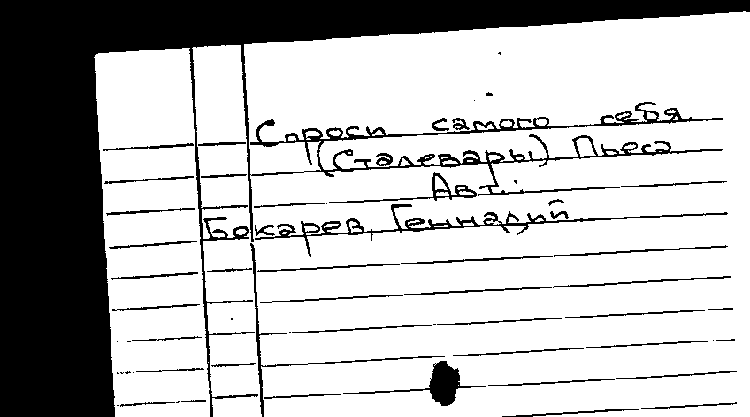 Спроси самого себя.
(Сталевары) Пьеса
Авт.:
Бокарев, Геннадий.